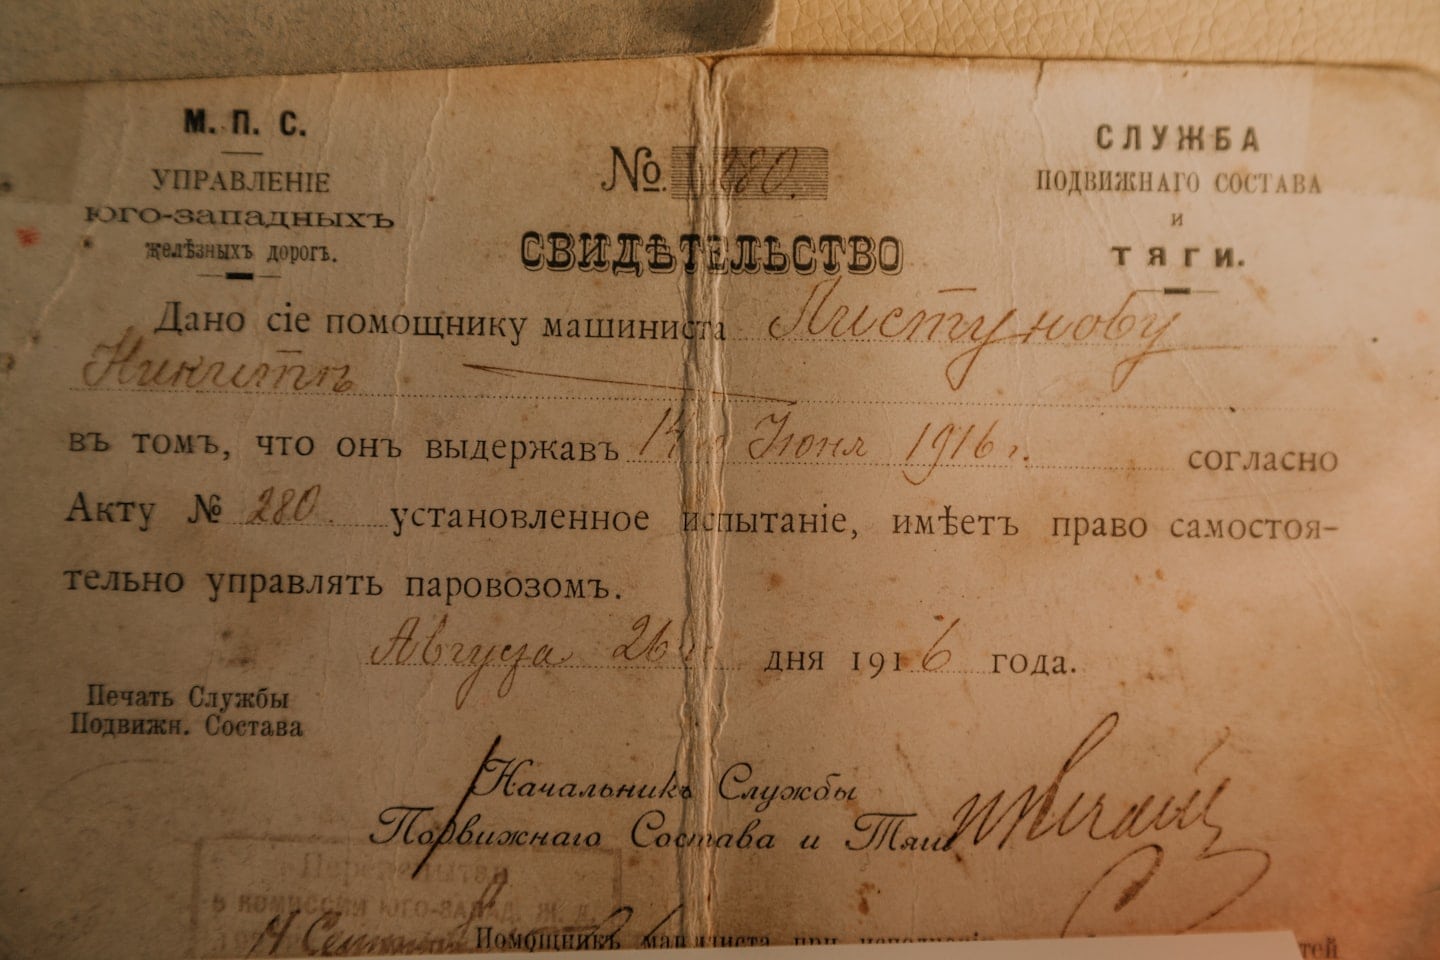 М. П. С.
УПРАВЛЕНІЕ
ЮГО-ЗАПАДНЫХЪ
желѣзныхъ дорогъ.
№ 280.
СВИДѢТЕЛЬСТВО
СЛУЖБА
ПОДВИЖНАГО СОСТАВА
И
ТЯГИ.
Дано сіе помощнику машиниста Листунову
Никитѣ
въ томъ, что онъ выдержавъ 14 Іюня 1916 г. согласно
Акту № 280. установленное испытаніе, имѣетъ право самостоя-
тельно управлять паровозомъ.
Августа 26 дня 1916 года.
Печать Службы
Подвижн. Состава
Начальникъ Службы
Подвижнаго Состава и Тяги
в комиссии ЮГО-ЗАПАД. Ж. Д.
14
Помощникъ машиниста при